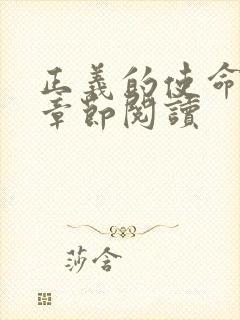 正義的使命
章節閱讀
莎含